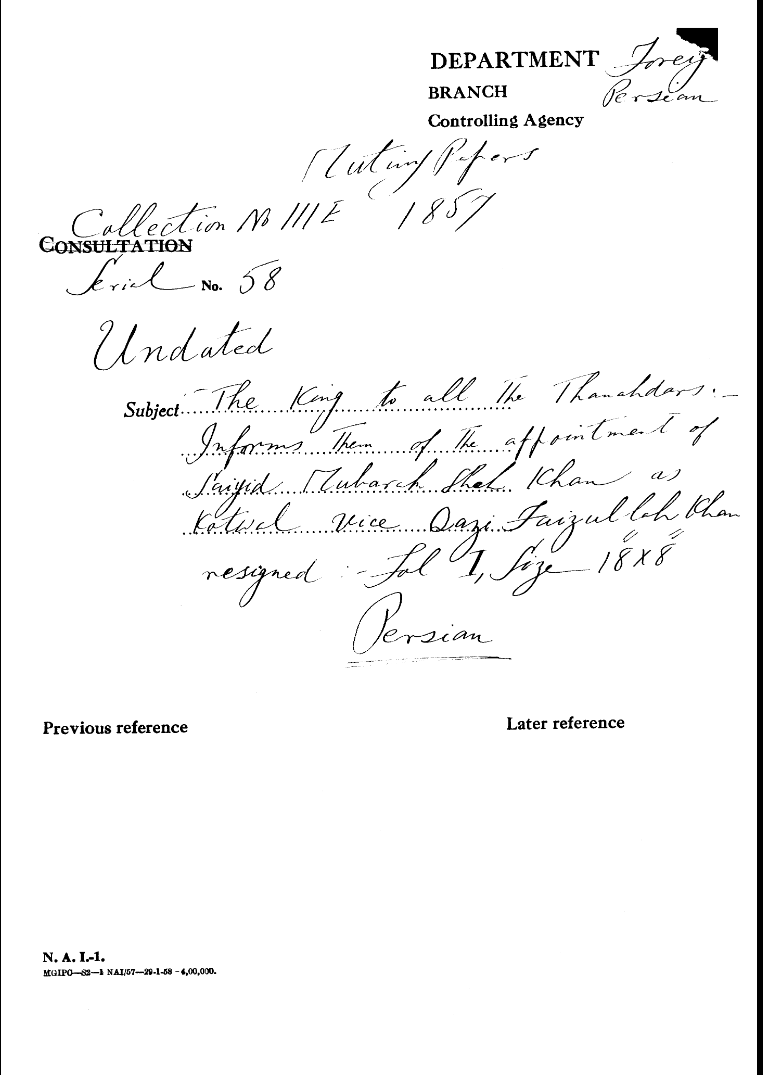 DEPARTMENT Foreig
BRANCH Persian
Controlling Agency
Mutiny Papers
Collection No 111 E 1857
CONSULTATION
Serial No. 58
Undated
Subject The King to all the Thanahdars.—
Informs them of the appointment of
Saiyid Mubarak Shah Khan as
Kotwal vice Qazi Faizullah Khan
resigned :- Fol 1, Size 18" X 8"
Persian
Previous reference Later reference
N. A. I.-1.
MGIPO—S2—1 NAI/57—29-1-58 – 4,00,000.